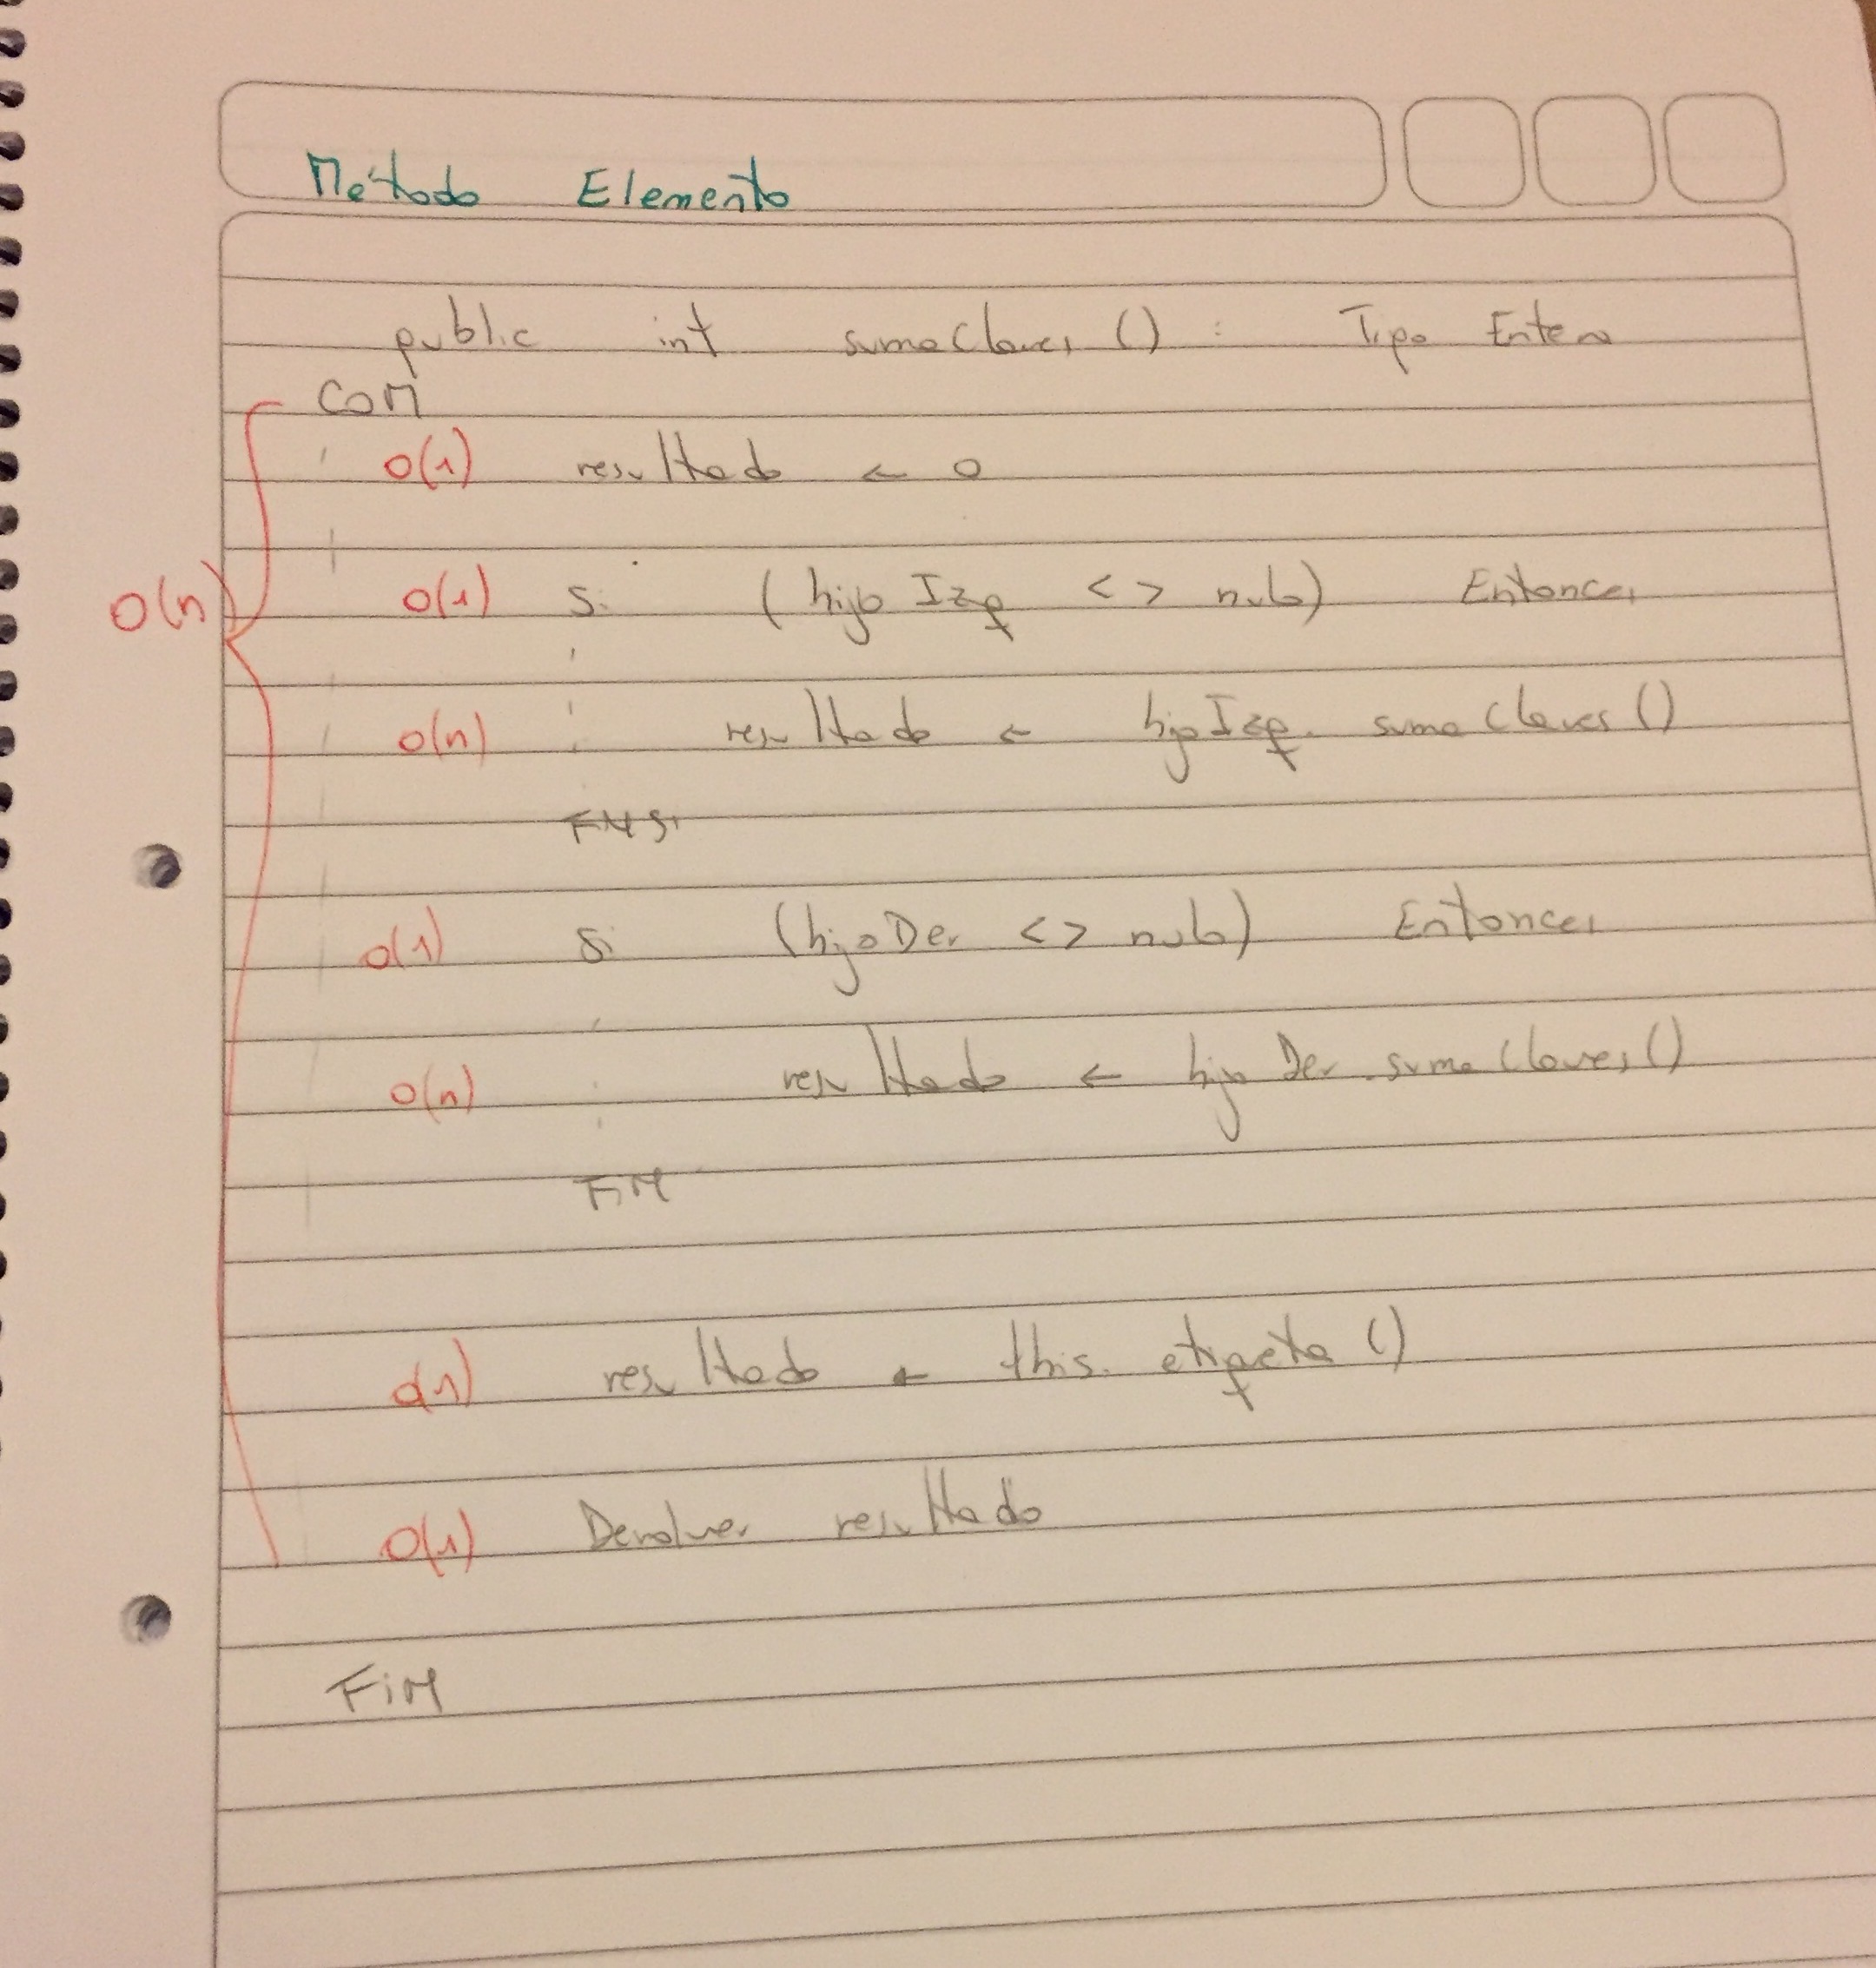 Método Elemento
public int sumaClaves () : Tipo Entero
COM
O(1) resultado ← 0
O(n)
O(1) Si (hijoIzq <> nulo) Entonces
O(n) resultado ← hijoIzq. sumaClaves ()
FINSi
O(1) Si (hijoDer <> nulo) Entonces
O(n) resultado ← hijoDer. sumaClaves ()
FiN
O(1) resultado ← this. etiqueta ()
O(1) Devolver resultado
FiN